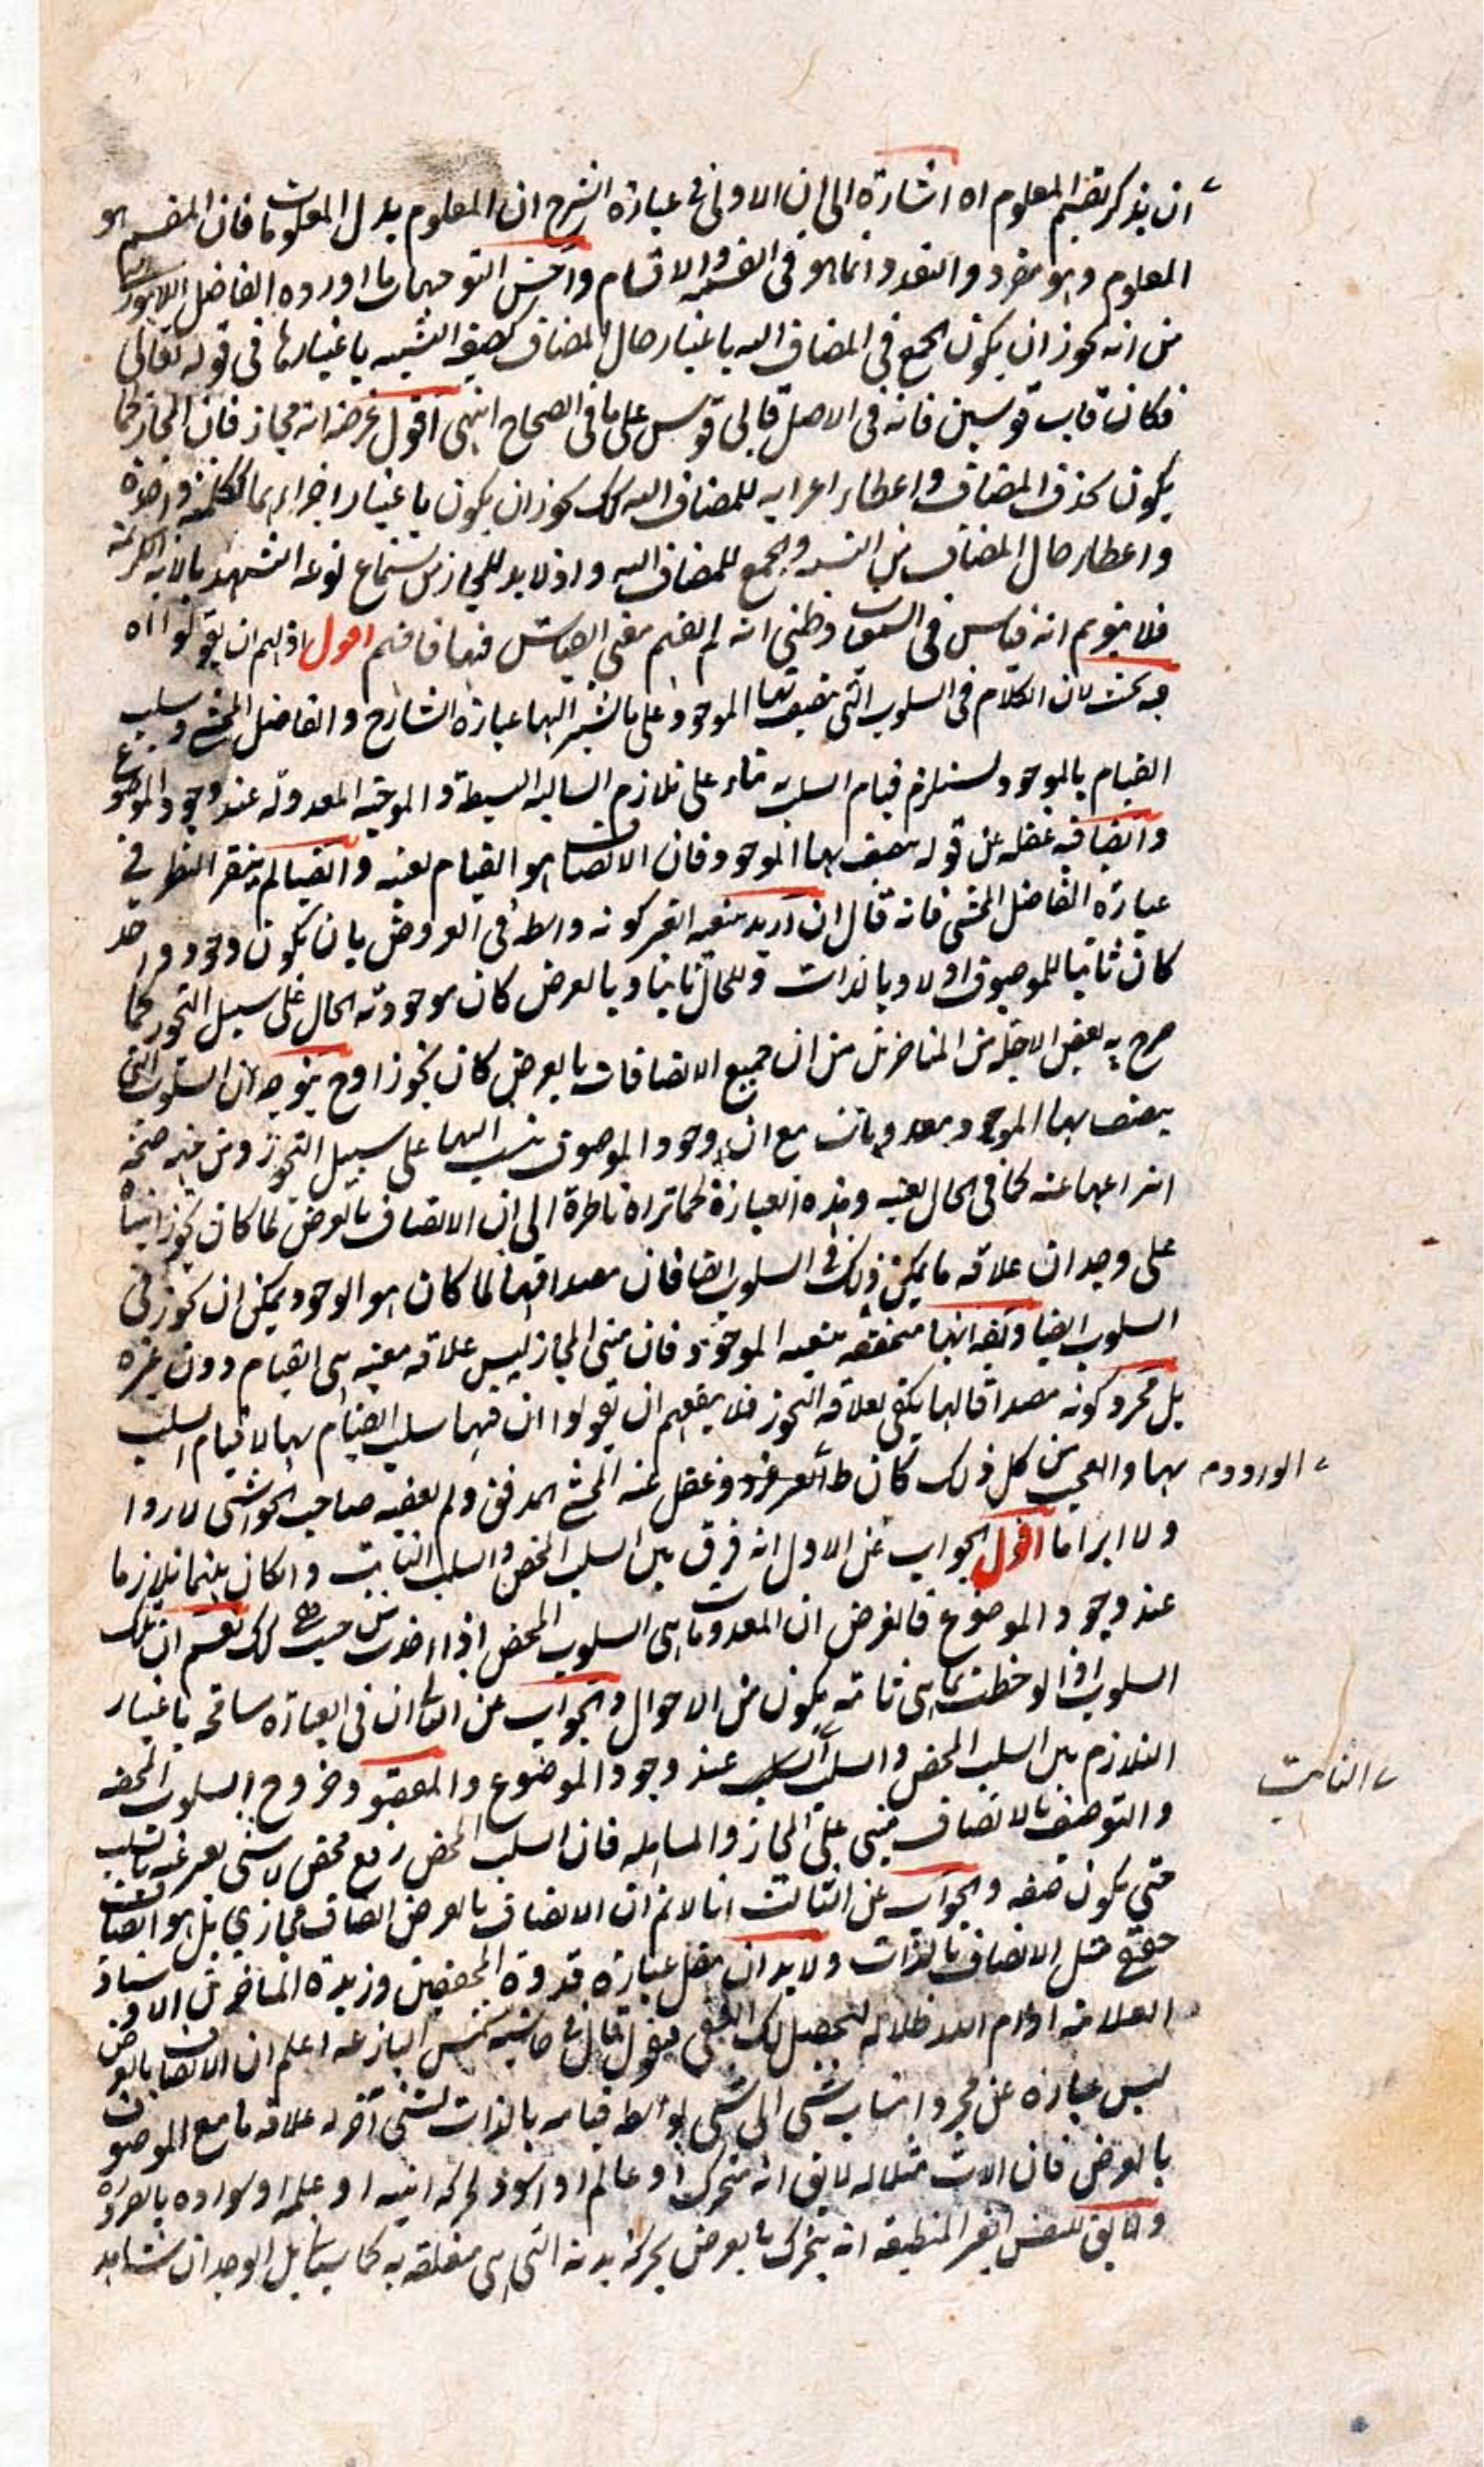 ان يذكر تقسيم المعلوم اه اشارة الى ان الاولى فى عبارة الشرح ان المعلوم بدل المعلومات فان المقسم هو
المعلوم وهو مفرد والتعدد انما هو فى القسمة والاقسام واحسن التوجيهات ما اورده الفاضل اللاهورى
من انه يجوز ان يكون الجمع فى المضاف اليه باعتبار حال المضاف كصيغة التثنية باعتبارها فى قوله تعالى
فكان قاب قوسين فانه فى الاصل قابى قوس على ما فى الصحاح انتهى اقول غرضه انه مجاز فان المجاز كما
يكون بحذف المضاف واعطاء اعرابه للمضاف اليه كك يجوز ان يكون باعتبار اجرائهما ككلمة واحدة
واعطاء حال المضاف من التثنية والجمع للمضاف اليه واذ لا بد للمجاز من استماع نوعه استشهد بالاية الكريمة
فلا يتوهم انه قياس فى وظنى انه لم يفهم معنى القياس فيها فافهم اقول ان يقولوا اه
فيه بحث لان الكلام فى السلوب التى يتصف بها الموجود على ما يشير اليها عبارة الشارح والفاضل المحشى وسلب
القيام بالموجود يستلزم قيام السلب بناء على تلازم السالبة البسيطة والموجبة المعدولة عند وجود الموضوع
وايضا فيه غفلة عن قوله يتصف بها الموجود فان الاتصاف هو القيام بعينه وايضا لم النظر فى
عبارة الفاضل المحشى فانه قال ان اريد بتبعية الغير كونه واسطة فى العروض بان يكون وجود واحد
كان ثابتا للموصوف اولا وبالذات وللحال ثانيا وبالعرض كان موجودية الحال على سبيل التجوز كما
صرح به بعض الاجلة من المتاخرين من ان جميع الاتصافات بالعرض كان تجوزا وح يتوجه ان السلوب التى
يتصف بها الموجود معدومات مع ان وجود الموصوف ينسب اليها على سبيل التجوز ومن صحة
انتزاعها عنه كما فى الحال بعينه وهذه العبارة كما تراه ناظرة الى ان الاتصاف بالعرض لما كان تجوزا
على وجدان علاقة ما يمكن ذلك فى السلوب ايضا فان مصداقها لما كان هو الوجود يمكن ان يجوز فى
السلوب ايضا متحققة بتبعية الموجود فان مبنى المجاز ليس علاقة معينة هى القيام دون غيره
بل مجرد كونه مصداقا لها يكفى لعلاقة التجوز فلا ينفعهم ان يقولوا ان فيها سلب القيام بها لا قيام السلب
بها والعجب من كل ذلك كان وغفل عنه المحشى المدقق ولم صاحب الحواشى لا ردا
الورود م
ولا ابراما اقول الجواب عن الاول انه فرق بين السلب المحض والسلب الثابت وان كان بينهما تلازما
عند وجود الموضوع فالغرض ان المعدومات هى السلوب المحض اذا اخذت من حيث هى كك نعم ان تلك
السلوب اذا لوحظت بما هى ثابتة يكون من الاحوال والجواب عن الثانى ان فى العبارة مسامحة باعتبار
التلازم بين السلب المحض والسلب عند وجود الموضوع والمقصود خروج السلوب المحضة
الثابت
والتوصيف بالاتصاف مبنى على المجاز والمساهلة فان السلب المحض رفع محض لا شى يعبر عنه بالسلب
حتى يكون صفة والجواب عن الثالث انا لا نم ان الاتصاف بالعرض اتصاف مجازى بل هو اتصاف
حقيقى مثل الاتصاف بالذات ولا بد ان ننقل عبارة قدوة المحققين وزبدة المتاخرين الاستاذ
العلامة ادام الله ظلاله ليحصل لك اليقين فنقول قال فى حاشية شمس البازغة اعلم ان الاتصاف بالعرض
ليس عبارة عن مجرد انتساب شى الى شى بواسطة قيامه بالذات لشى آخر له علاقة ما مع الموصوف
بالعرض فان الاب مثلا له لا يق انه متحرك او عالم او اسود لحركة ابنه او علمه او سواده بالعرض
وانما يق للنفس الغير المنطبعة انه يتحرك بالعرض بحركة بدنه التى هى متعلقة به كما سياتى بل الوجدان شاهد